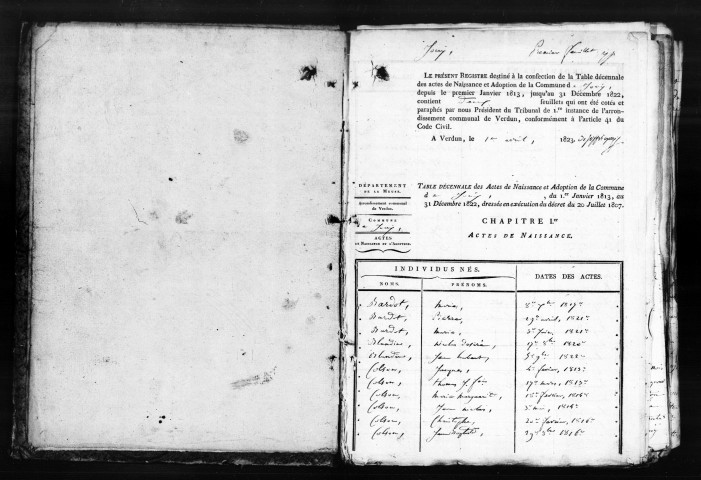 Jouy,
Premier feuillet
LE PRÉSENT REGISTRE destiné à la confection de la Table décennale
des actes de Naissance et Adoption de la Commune d e Jouy,
depuis le premier Janvier 1813, jusqu'au 31 Décembre 1822,
contient feuillets qui ont été cotés et
paraphés par nous Président du Tribunal de 1.re instance de l'arron-
dissement communal de Verdun, conformément à l'article 41 du
Code Civil.
A Verdun, le 1er avril, 1823.
DÉPARTEMENT
DE LA MEUSE.
Arrondissement communal
de Verdun.
COMMUNE
de Jouy,
ACTES
DE NAISSANCE ET D'ADOPTION.
TABLE DÉCENNALE des Actes de Naissance et Adoption de la Commune
d e Jouy, , du 1.er Janvier 1813, au
31 Décembre 1822, dressée en exécution du décret du 20 Juillet 1807.
CHAPITRE I.er
ACTES DE NAISSANCE.
INDIVIDUS NÉS.
DATES DES ACTES.
NOMS.
PRÉNOMS.
Bardot, Marie, 1817
Bardot, Pierre, 19 avril, 1821
Bardot, Marie, 1821
Blandin, Nicolas 17 8bre 1820
Blandin, Jean 9bre 1822
Colson, Jacques, février, 1813
Colson, 17 mars, 1813
Colson, Marie Marguerite, février, 1816
Colson, Jean Nicolas, 1816
Colson, Christophe, février, 1816
Colson, Jean 1816